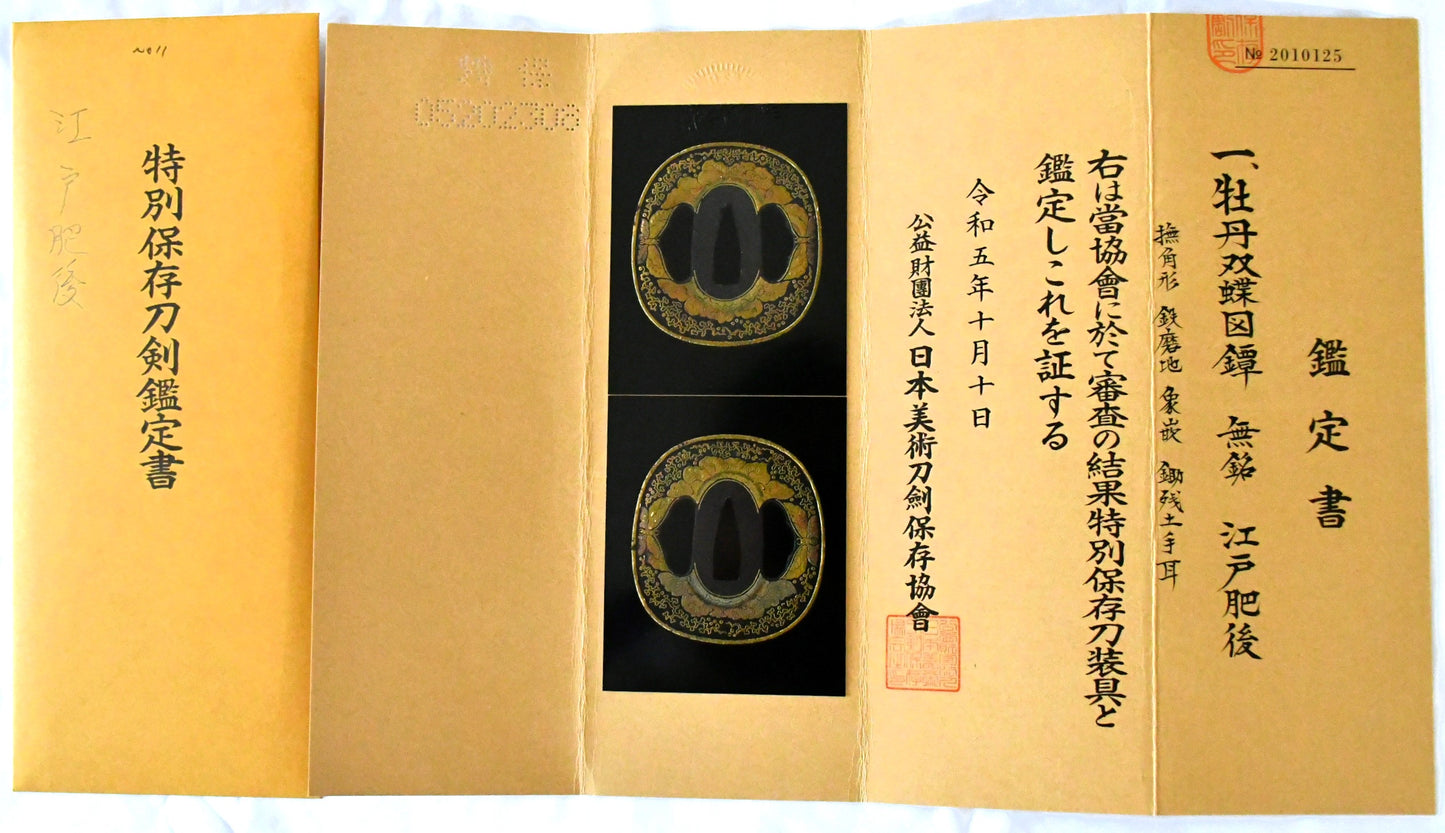 No 11
江戸肥後
特別保存刀剣鑑定書
№ 2010125
鑑定書
一、牡丹双蝶図鐔 無銘 江戸肥後
撫角形 鉄磨地 象嵌 鋤残土手耳
右は當協會に於て審査の結果特別保存刀装具と
鑑定しこれを証する
令和五年十月十日
公益財團法人 日本美術刀劍保存協會
05202308